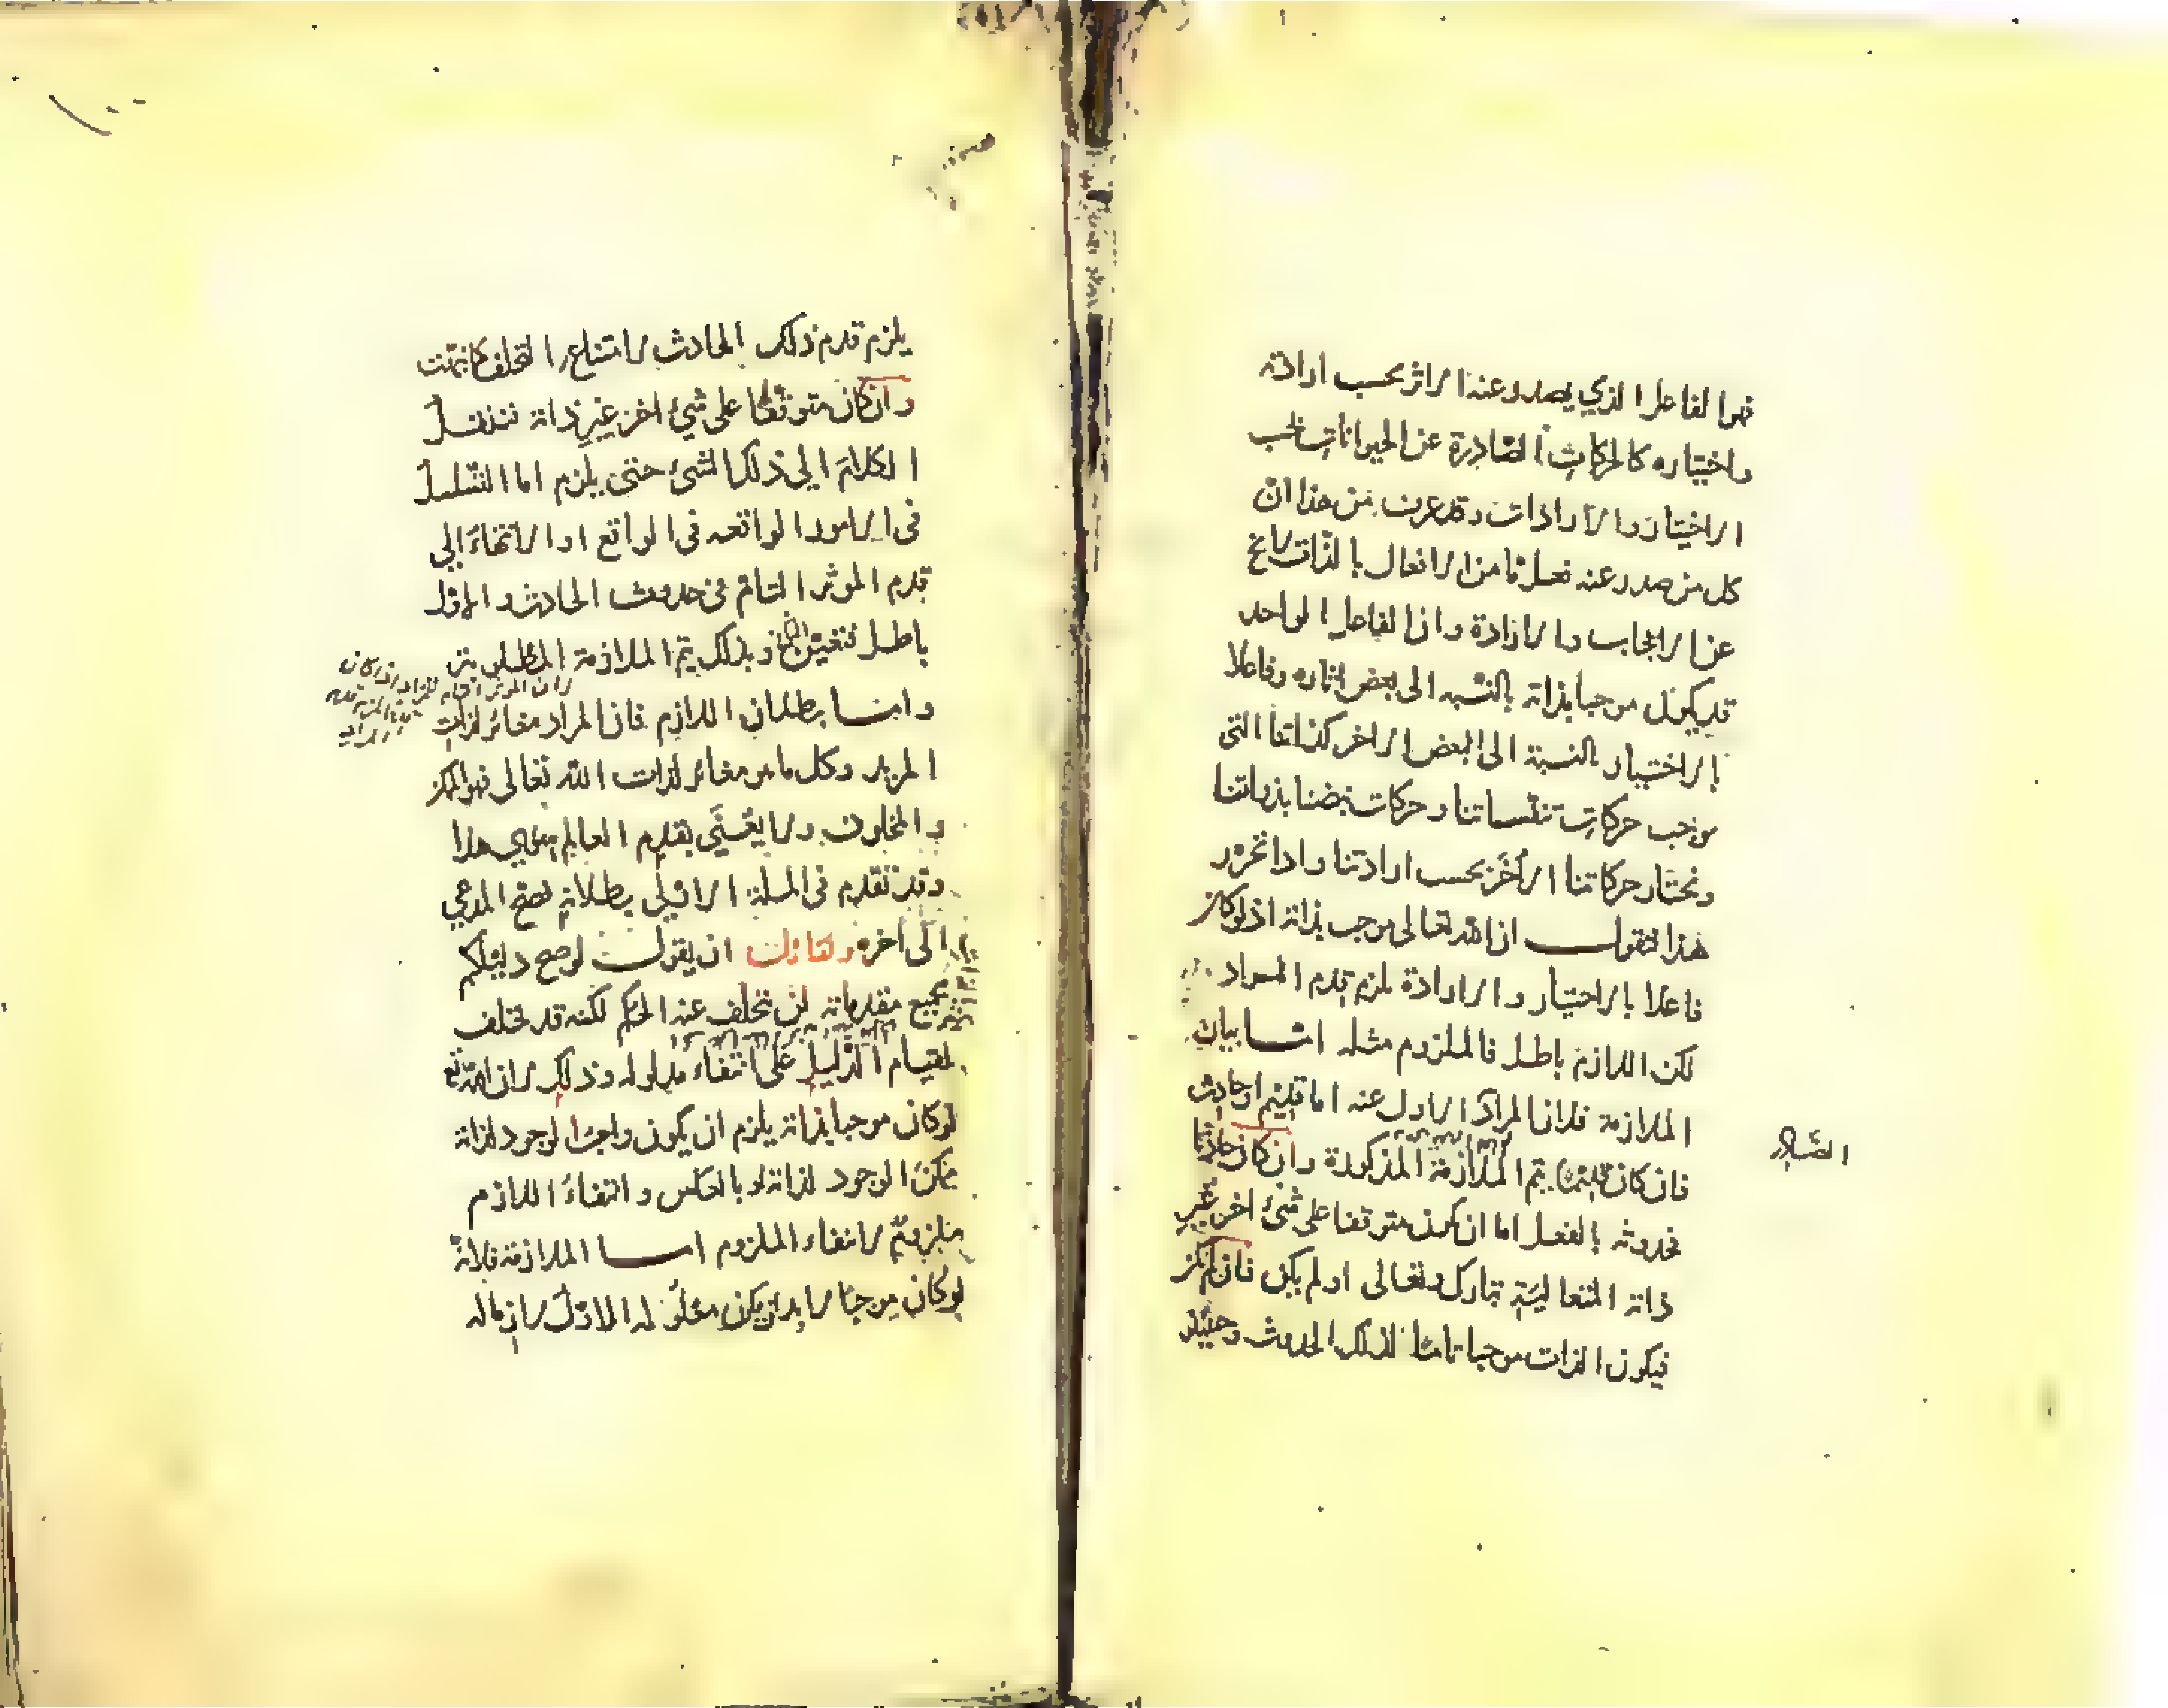 فهو الفاعل الذي يصدر عنه الاثر بحسب ارادته
واختياره كالحركات الصادرة عن الحيوانات بحسب
الاختيار والارادات وقد عرف من هذا ان
كل من صدر عنه فعل ما من الافعال بالذات لا يخ
عن الايجاب والارادة وان الفاعل الواحد
قد يكون موجبا بذاته بالنسبه الى بعض اثاره وفاعلا
بالاختيار بالنسبة الى البعض الاخر كذاتنا التى
موجب حركات تنفساتنا وحركات نبضنا بذواتنا
ونختار حركاتنا الأخَر بحسب ارادتنا واذا تحرر
هذا فنقول ان الله تعالى موجب بذاته اذ لو كان
فاعلا بالاختيار والارادة لزم قدم المراد
لكن اللازم باطل فالملزوم مثله امّا بيان
الملازمة فلان المراد الاول عنه اما قديم او حادث
الصادر
فان كان قديما يتم الملازمة المذكورة وان كان حادثا
فحدوثه بالفعل اما ان يكون متوقفا على شئ اخر غير
ذاته المتعاليّة تبارك وتعالى او لم يكن فان لم يكن
فيكون الذات موجبا تامّا لذلك الحدوث وحينئذ
يلزم قدم ذلك الحادث لامتناع التخلف كما بيّنت
وان كان متوقفا على شئ اخر غير ذاته فننقل
الكلام الي ذلك الشئ حتى يلزم اما التسلسل
في الامور الواقعه فى الواقع او الانتهاء الي
قدم الموثر التام فى حدوث الحادث والاول
باطل فتعيّن الثاني وبذلك يتم الملازمة المطلوبة
وامّا بطلان اللازم فان المراد مغائر لذات
المريد وكل ما هو مغائر لذات الله تعالى فهو الممكن
والمخلوق ولا يعْنَي بقدم العالم سوي هذا
وقد تقدم فى المسلة الاولي بطلانه فصح المدعي
الى آخره ولقائل ان يقول لوصح دليلكم
بجميع مقدماته لن تخلف عنه الحكم لكنه قد تخلف
لقيام الدّليل على انتفاء مدلوله وذلك لان الله تع
لو كان موجبا بذاته يلزم ان يكون واجب الوجود لذاته
ممكن الوجود لذاته او بالعكس وانتفاء اللازم
ملزومٌ لانتفاء الملزوم امّا الملازمة فلانهُ
لو كان موجبًا لابد ان يكون معلوله الاوّل لازما له